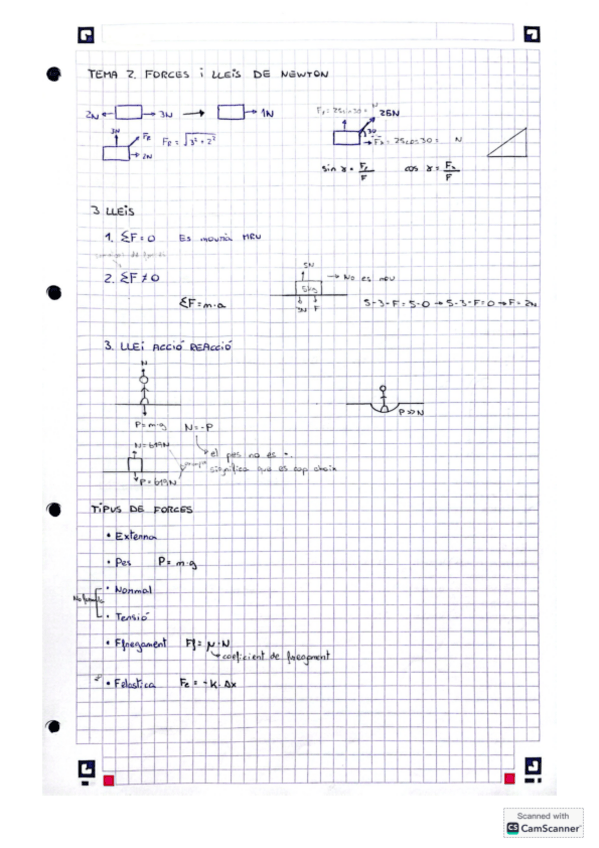 TEMA 2. FORCES i LLEIS DE NEWTON
2N 3N 1N
Fy = 25sin30 = N 25N
30
Fx = 25cos30 = N
3N FR FR = √3²+2²
2N
sin γ = Fy/F cos γ = Fx/F
3 LLEIS
1. ΣF = 0 Es mouria MRU
2. ΣF ≠ 0
ΣF = m·a
5N
No es mou
5kg
3N F
5-3-F = 5·0 → 5-3-F = 0 → F = 2N
3. LLEI ACCIÓ REACCIÓ
N
P = m·g N = -P
P>>N
N = 619N
P = 619N
el pes no es -.
significa que es cap abaix
TIPUS DE FORCES
• Externa
• Pes P = m·g
• Normal
• Tensió
• Ffregament Ff = μ·N
coeficient de fregament
• Felastica Fe = -k·Δx
Scanned with
CS CamScanner